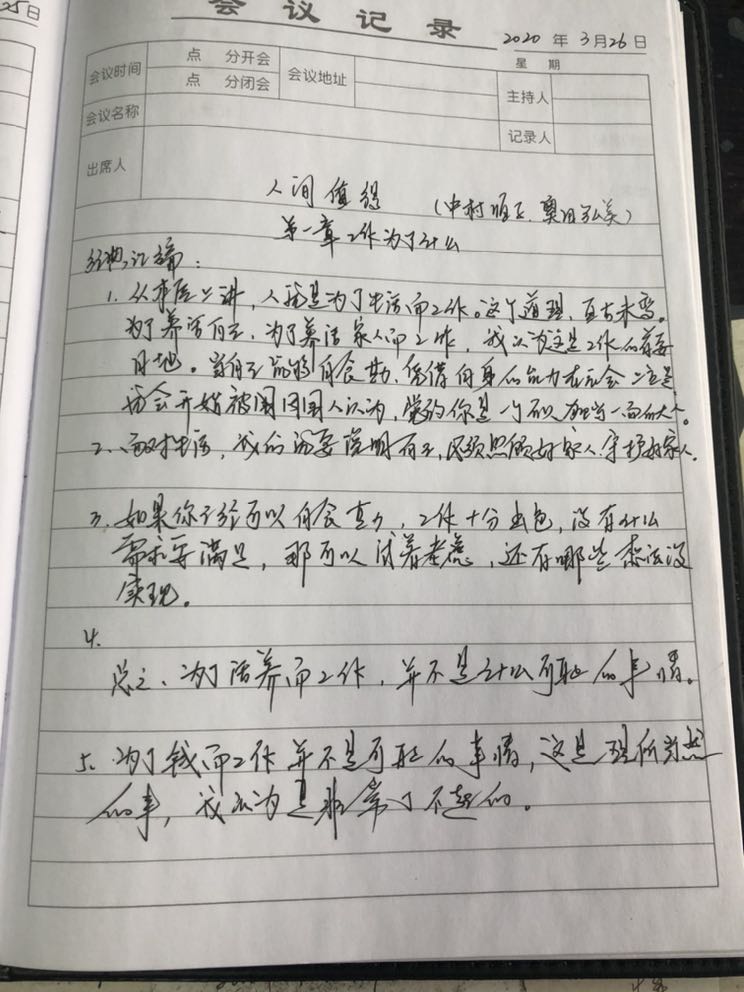 25日
会议记录
2020 年 3月26日
星 期
会议时间 点 分开会 会议地址
点 分闭会
主持人
会议名称
记录人
出席人
人间值得 (中村恒子、奥田弘美)
第一章 工作为了什么
经典汇编:
1. 从本质上讲,人就是为了生活而工作。这个道理,亘古未变。
为了养活自己、为了养活家人而工作,我认为这是工作的首要
目地。当自己能够自食其力、凭借自身的能力在社会上立足
就会开始被周围人认为,觉的你是一个可以独当一面的大人。
2、面对生活,我们需要说明自己,必须照顾好家人、守护好家人。
3、如果你已经可以自食其力,工作十分出色,没有什么
需求要满足,那可以试着考虑,还有哪些想法没
实现。
4.
总之、为了活养而工作,并不是什么可耻的事情。
5. 为了钱而工作并不是可耻的事情,这是理所当然
的事,我认为是非常了不起的。